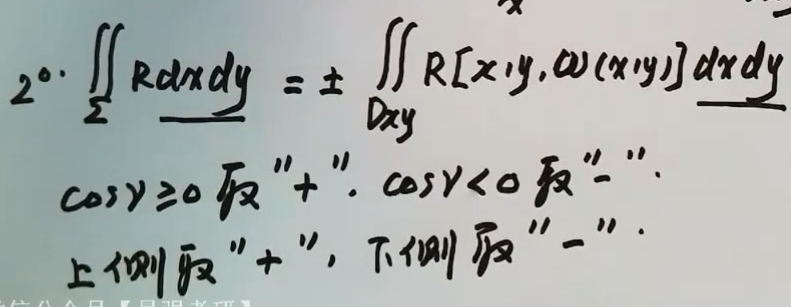 2°. ∬_Σ Rdxdy = ± ∬_Dxy R[x,y,ω(x,y)]dxdy
cosγ≥0 取"+". cosγ<0 取"-".
上侧取"+", 下侧取"-".